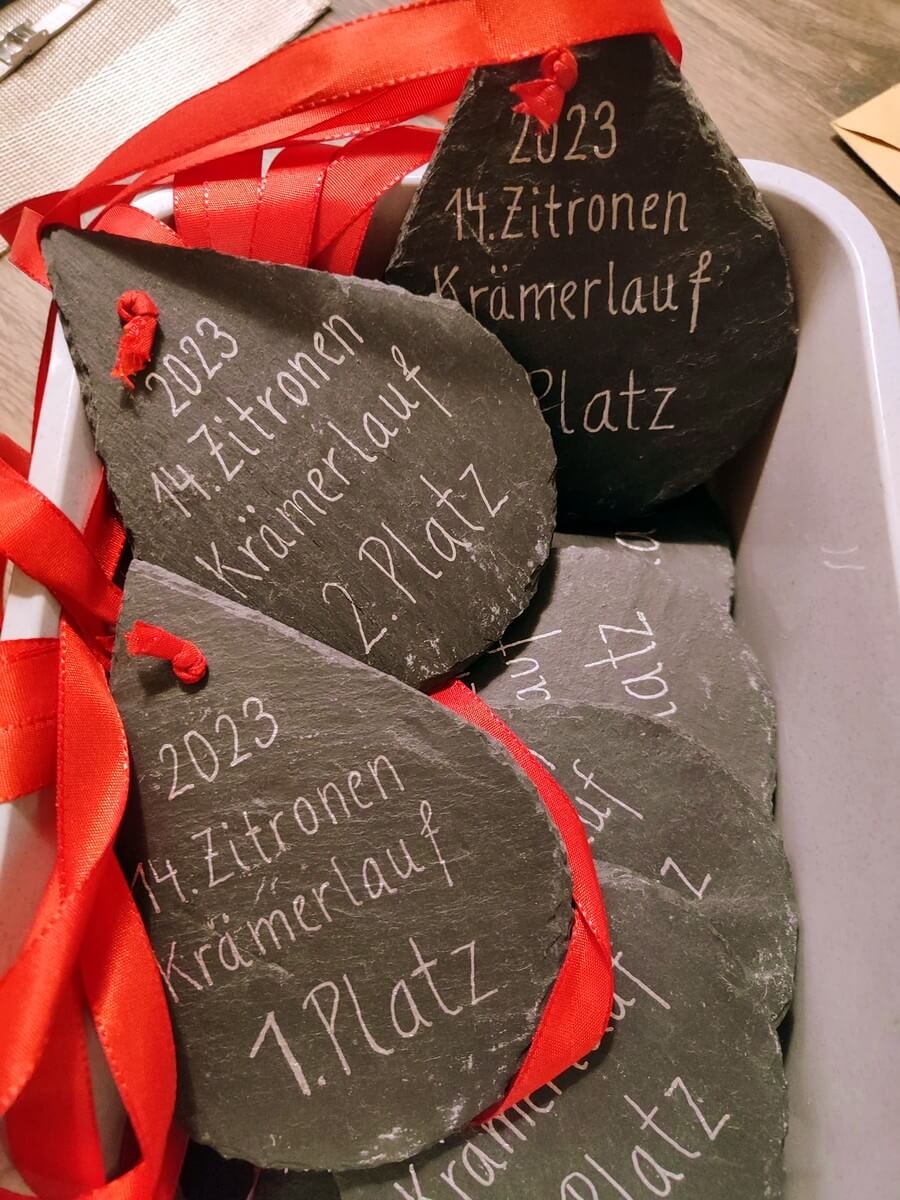 2023
14. Zitronen
Krämerlauf
Platz
2023
14. Zitronen
Krämerlauf
2. Platz
2023
14. Zitronen
Krämerlauf
1. Platz
Platz